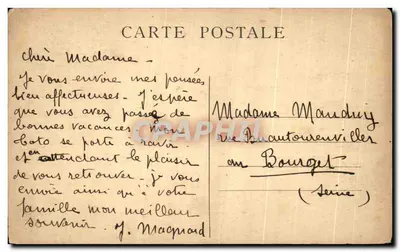 CARTE POSTALE
Chère Madame -
Je vous envoie mes pensées
bien affectueuses - J'espère
que vous avez passé de
bonnes vacances. Mon
Coto se porte à ravir
et en attendant le plaisir
de vous retrouver. je vous
envoie ainsi qu'à votre
famille mon meilleur
souvenir. J. Magnard
Madame
rue
au Bourget
(Seine)